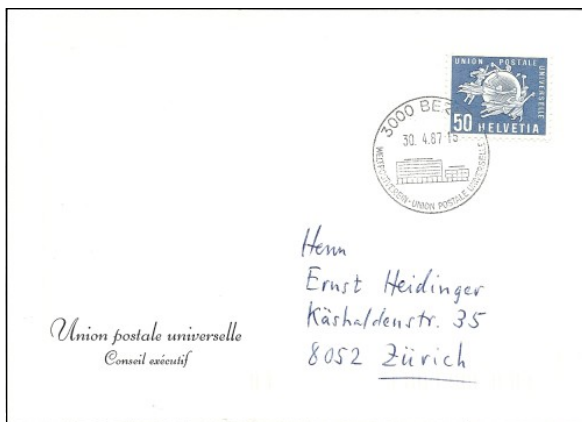 UNION POSTALE
UNIVERSELLE
50 HELVETIA
3000 BE
30. 4.87-15
WELTPOSTVEREIN · UNION POSTALE UNIVERSELLE
Herrn
Ernst Heidinger
Käshaldenstr. 35
8052 Zürich
Union postale universelle
Conseil exécutif